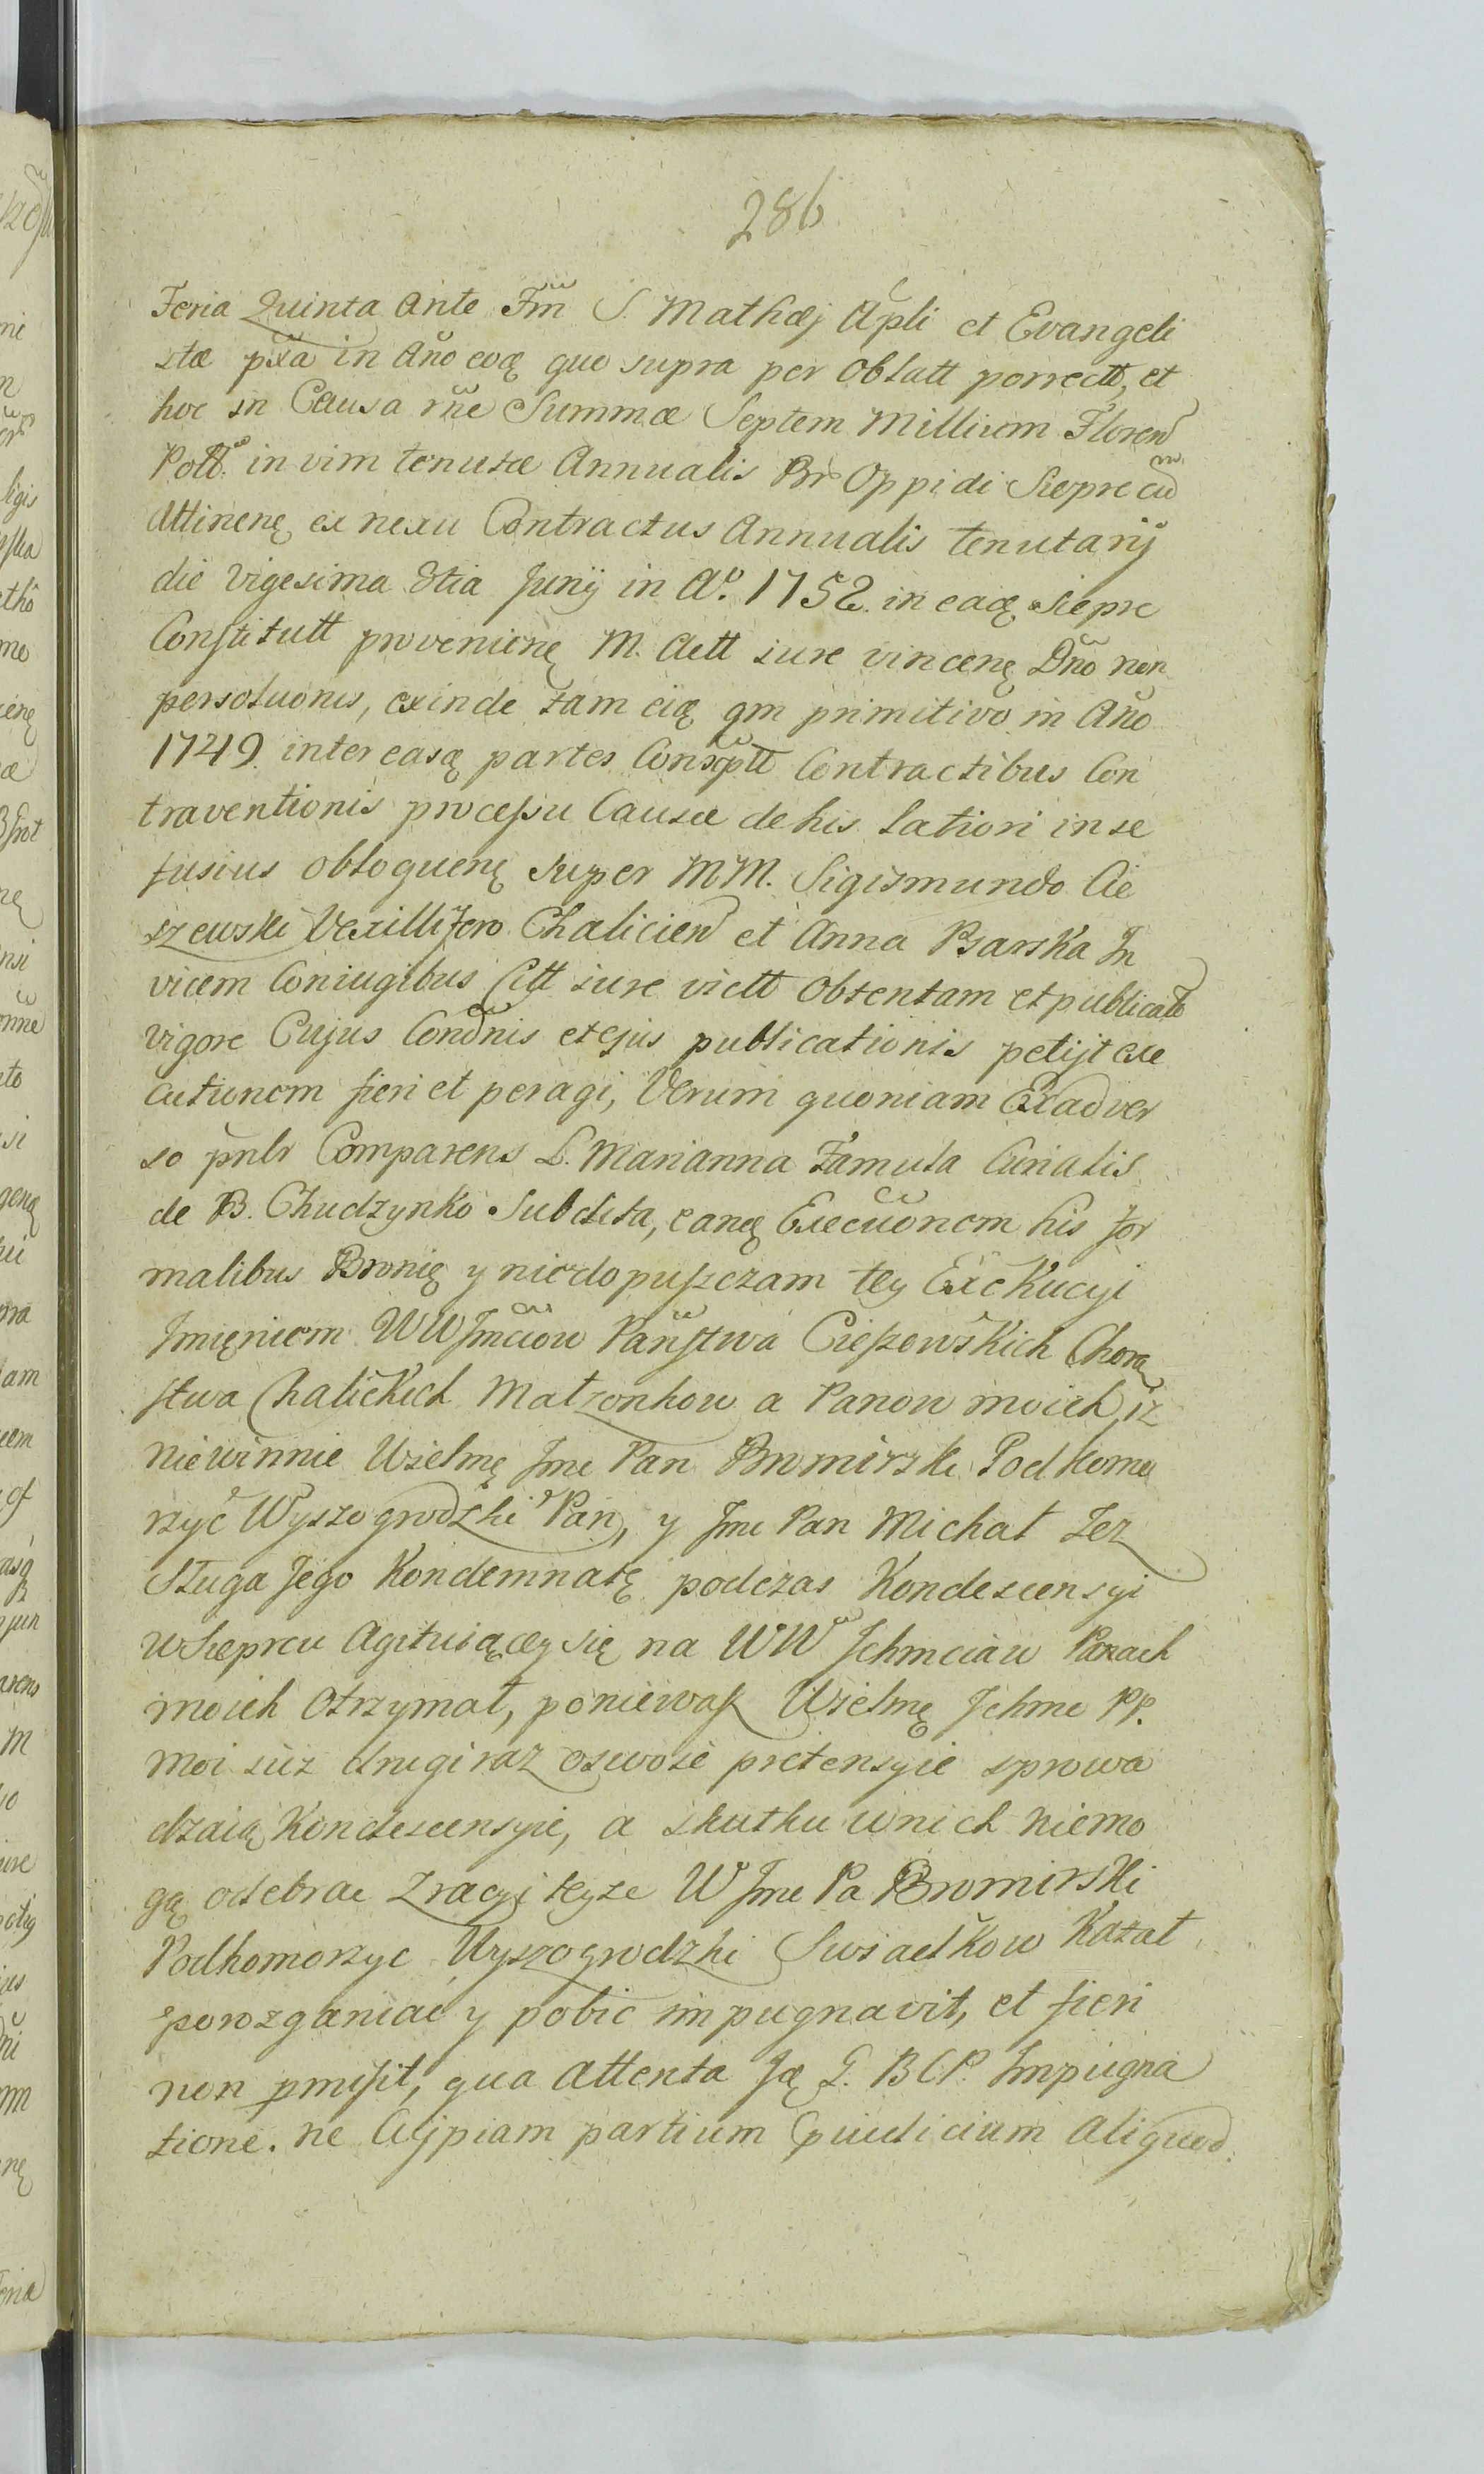 286
Feria Quinta Ante Fm̃ S. Mathæj Ap̃li et Evangeli
stæ px̃a in Año eoq̨ quo supra per Oblatt porrectt, et
hoc in Causa rñe Summæ Septem Millium Floren
Poll. in vim tenutæ Annualis Br Oppidi Sieprc cũ
Attinenę ex nexu Contractus Annualis tenutarij
die Vigesima 8tia Junij in A.º 1752. in eadę Sieprc
Constitutt provenienę M. Actt iure vincenę Dño non
persolutionis, exinde tam eiq̨ qm primitivo in Año
1749. inter easq̨ partes Consc̃ptt Contractibus Con
traventionis processu Causæ de his latiori in se
fusius obloquenę super MM. Sigismundo Cie
szewski Vexillifero Chalicien et Anna Psarska In
vicem Coniugibus Citt iure victt Obtentam et publicatã
vigore Cujus Condñnis et ejus publicationis petijt exe
cutionem fieri et peragi, Verum quoniam Ex adver
so pñlr Comparens L. Marianna Famula Curialis
de B. Chudzynko Subdita, eanę Execũonem his for
malibus Bronię y niedopuszczam tey Exekucyi
Imięniem WWJmciow Państwa Cieszewskich Chorą
stwa Chalickich Małzonkow a Panow moich, iz
niewinnie Wielmę Jme Pan Bromirski Podkomo
rzyc Wyszogrodzki Pan, y Jme Pan Michał Jez
Sługa Jego Kondemnatę podczas Kondescensyi
w Sieprcu Agituiącey się na WW Jchmciaw Panach
moich Otrzymał, poniewasz Wielmę Jchme PP.
moi iuz drugi raz oswoie pretensyie sprowa
dzaią Kondescensyie, a skutku wnich niemo
gą odebrac zracyi teyze W Jme Pa Bromirski
Podkomorzyc Wyszogrodzki Swiadkow Kazał
porozganiac y pobic impugnavit, et fieri
non pmisit, qua attenta Ją G. B C P. Impugna
tione. ne Cujpiam partium pjudicium aliquod